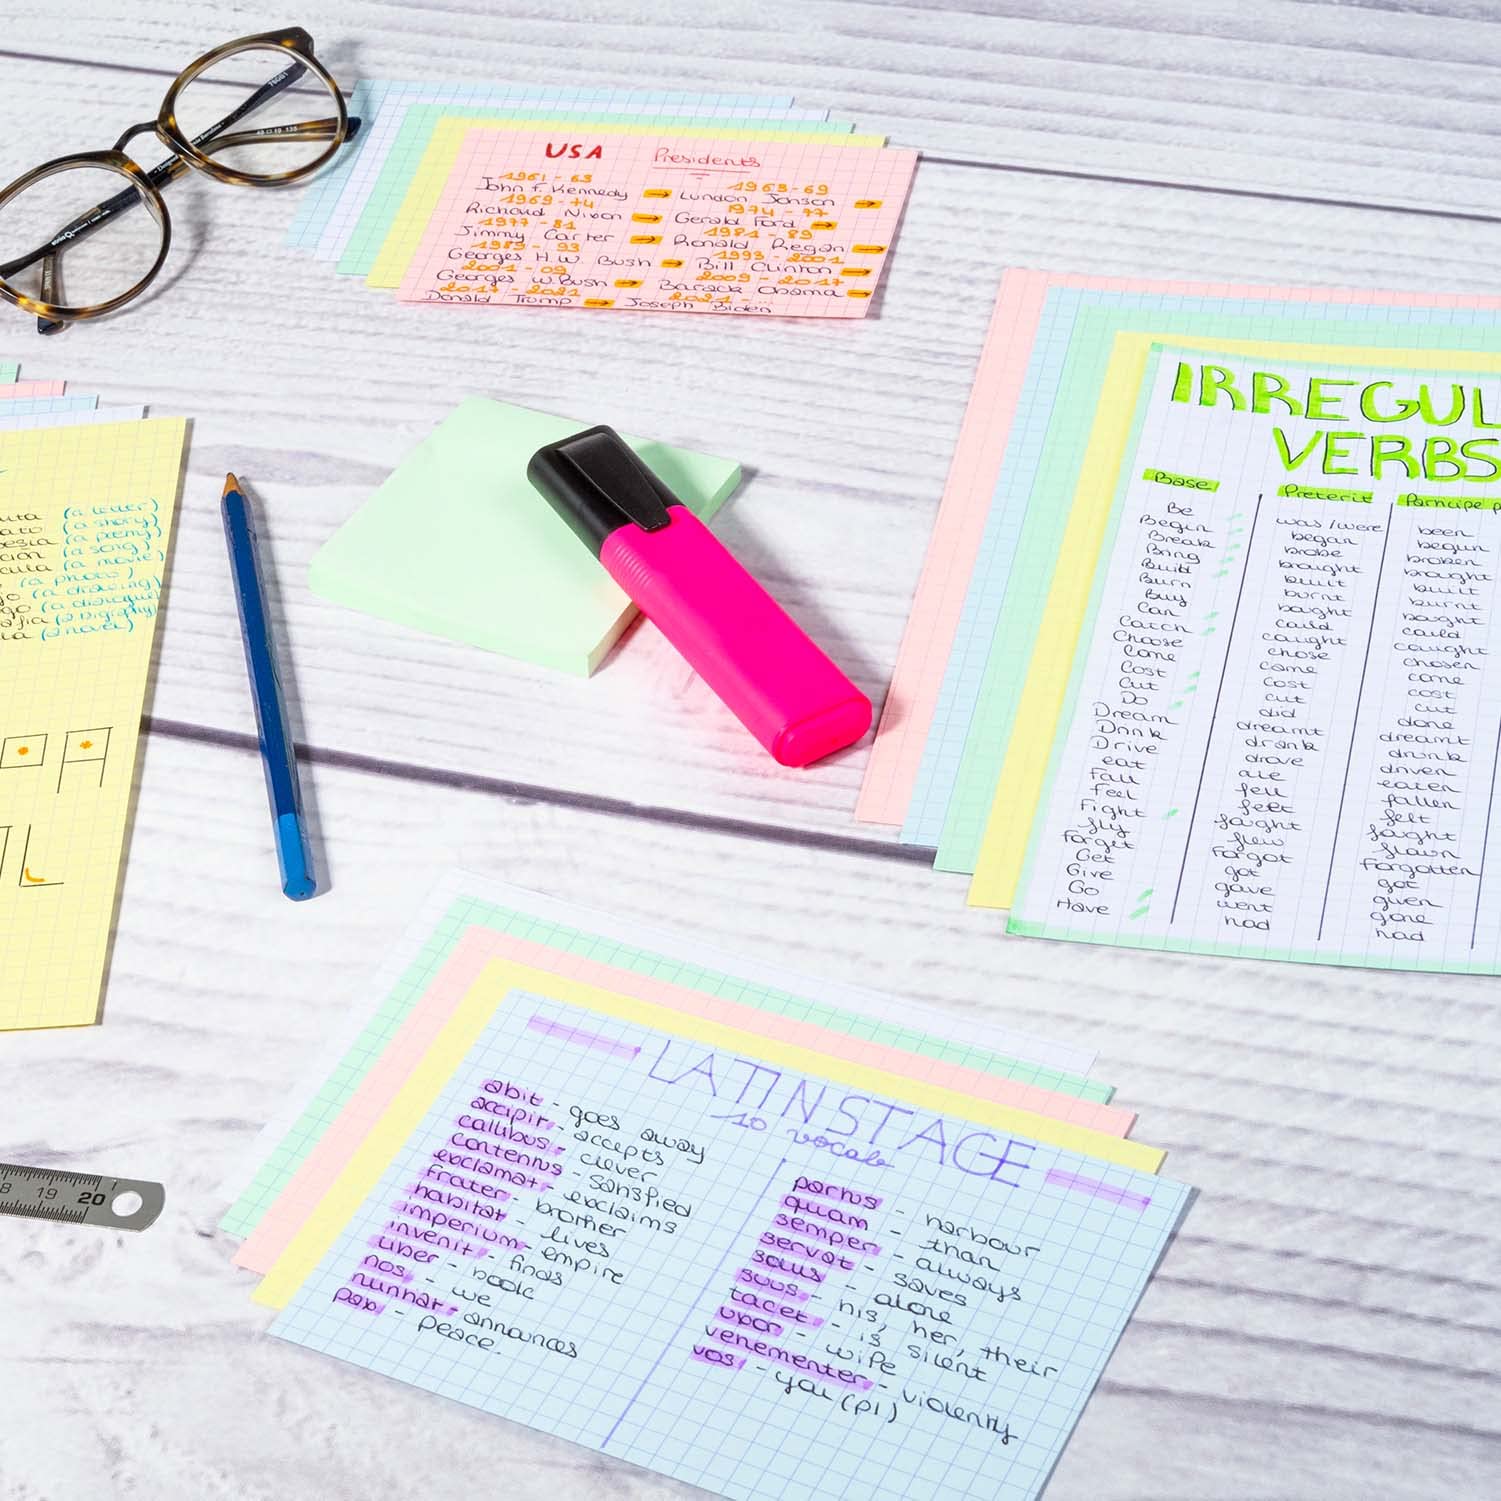 USA Presidents
1961 - 63 1963 - 69
John F. Kennedy → Lundon Jonson →
1969 - 74 1974 - 77
Richard Nixon → Gerald Ford →
1977 - 81 1981 - 89
Jimmy Carter → Ronald Regan →
1989 - 93 1993 - 2001
Georges H.W. Bush → Bill Clinton →
2001 - 09 2009 - 2017
Georges W. Bush → Barack Obama →
2017 - 2021 2021 - ...
Donald Trump → Joseph Biden
(a letter)
(a story)
(a poem)
(a song)
(a movie)
(a photo)
(a drawing)
(a dialogue)
(a biography)
(a novel)
IRREGUL
VERBS
Base Preterit Participe p
Be was/were been
Begin began begun
Break broke broken
Bring brought brought
Build built built
Burn burnt burnt
Buy bought bought
Can could could
Catch caught caught
Choose chose chosen
Come came come
Cost cost cost
Cut cut cut
Do did done
Dream dreamt dreamt
Drink drank drunk
Drive drove driven
eat ate eaten
Fall fell fallen
Feel felt felt
Fight fought fought
fly flew flown
Forget Forgot Forgotten
Get got got
Give gave given
Go went gone
Have had had
LATIN STAGE
10 vocab
abit - goes away
accipit - accepts
callibus - clever
contentus - satisfied
exclamat - exclaims
frater - brother
habitat - lives
imperium - empire
invenit - finds
liber - book
nos - we
nuntiat - announces
pax - peace.
portus - harbour
quam - than
semper - always
servat - saves
solus - alone
suus - his, her, their
tacet - is silent
uxor - wife
vehementer - violently
vos - you (pl)
18 19 20